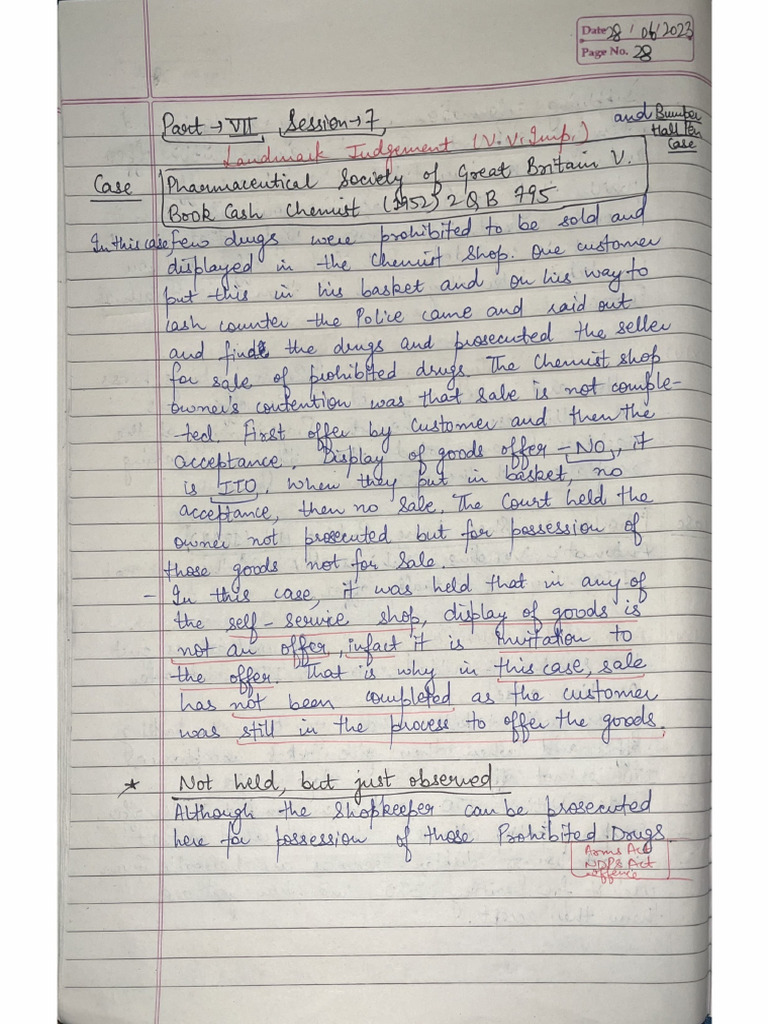 Date 28/06/2023
Page No. 28
Part → VII, Session → 7
and Bumper
Hall Pen
Case
Landmark Judgement (V.V. Imp.)
Case Pharmaceutical Society of Great Britain V.
Book Cash Chemist (1952) 2 QB 795
In this case, few drugs were prohibited to be sold and
displayed in the Chemist Shop. One customer
put this in his basket and on his way to
cash counter the Police came and raid out
and finds the drugs and prosecuted the seller
for sale of prohibited drugs. The Chemist shop
owner's contention was that sale is not comple-
-ted. First offer by customer and then the
acceptance. Display of goods offer - NO, it
is ITO. When they put in basket, no
acceptance, then no sale. The Court held the
owner not prosecuted but for possession of
those goods not for sale.
- In this case, it was held that in any of
the self-service shop, display of goods is
not an offer, infact it is Invitation to
the offer. That is why in this case, sale
has not been completed as the customer
was still in the process to offer the goods.
* Not held, but just observed
Although the Shopkeeper can be prosecuted
here for possession of those Prohibited Drugs
Arms Act
NDPS Act
offence